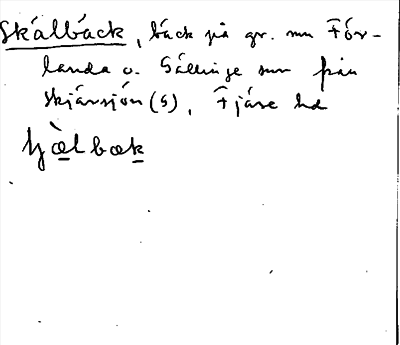 Skálbáck, báck på gr. mn För-
landa o. Gällinge sun från
Skjärsjön (S), Fjäre hd
bæk